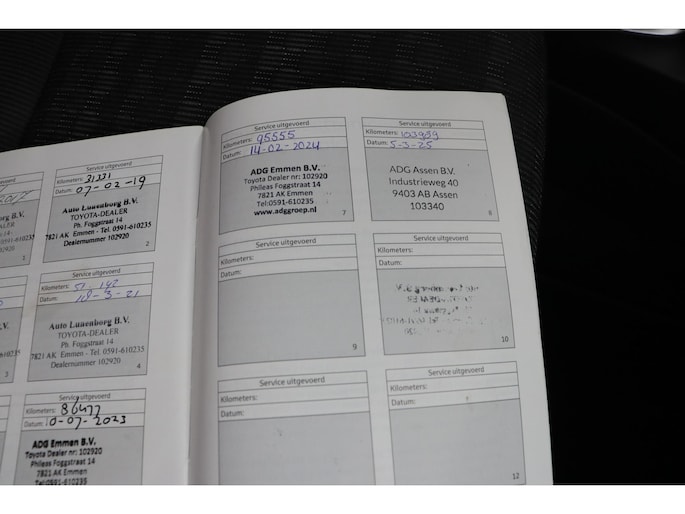 1
Service uitgevoerd
Kilometers: 31331
Datum: 07-02-19
Auto Luaenborg B.V.
TOYOTA-DEALER
Ph. Foggstraat 14
7821 AK Emmen - Tel. 0591-610235
Dealernummer 102920
2
3
Service uitgevoerd
Kilometers: 51.142
Datum:
Auto Luaenborg B.V.
TOYOTA-DEALER
Ph. Foggstraat 14
7821 AK Emmen - Tel. 0591-610235
Dealernummer 102920
4
Service uitgevoerd
Kilometers: 86477
Datum: 10-07-2023
ADG Emmen B.V.
Toyota Dealer nr: 102920
Phileas Foggstraat 14
7821 AK Emmen
Tel:0591-610235
Service uitgevoerd
Kilometers: 95555
Datum: 14-02-2024
ADG Emmen B.V.
Toyota Dealer nr: 102920
Phileas Foggstraat 14
7821 AK Emmen
Tel:0591-610235
www.adggroep.nl
7
Service uitgevoerd
Kilometers: 103989
Datum: 5-3-25
ADG Assen B.V.
Industrieweg 40
9403 AB Assen
103340
8
Service uitgevoerd
Kilometers:
Datum:
9
Service uitgevoerd
Kilometers:
Datum:
10
Service uitgevoerd
Kilometers:
Datum:
Service uitgevoerd
Kilometers:
Datum:
12